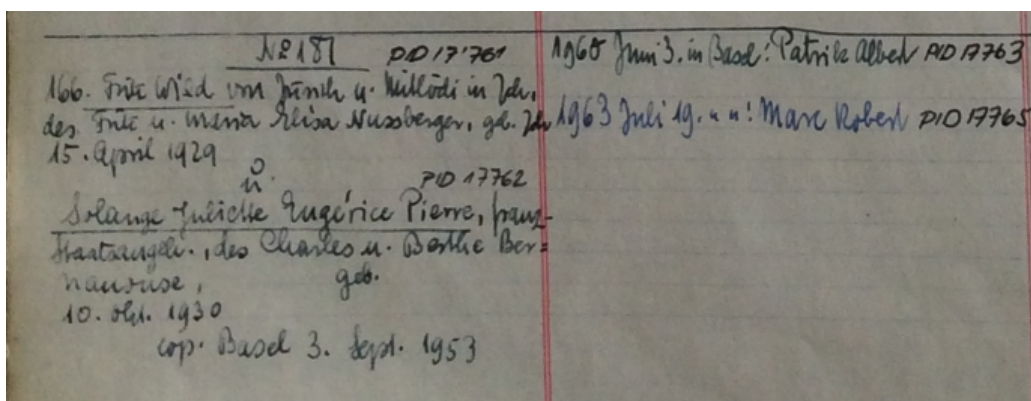 No 181 PID 17'761
166. Fritz Wild von Zürich u. Mitlödi in Zch,
des Fritz u. Maria Elisa Nussberger, geb. Zch
15. April 1929
u.
PID 17762
Solange Juliette Eugérice Pierre, franz-
Staatsangeh., des Charles u. Berthe Ber=
navouse, geb.
10. okt. 1930
cop. Basel 3. Sept. 1953
1960 Juni 3. in Basel: Patrik Albert PID 17763
1963 Juli 19. " ": Marc Robert PID 17765